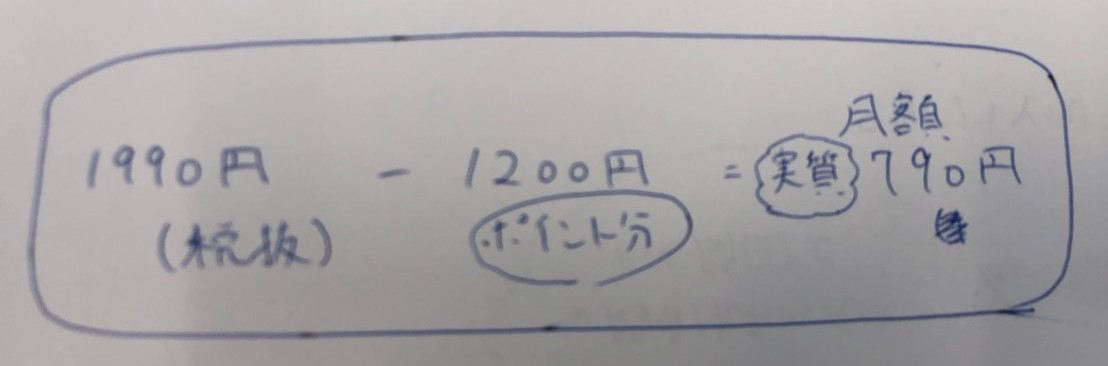 月額
1990円 - 1200円 = 実質 790円
(税抜) ポイント分